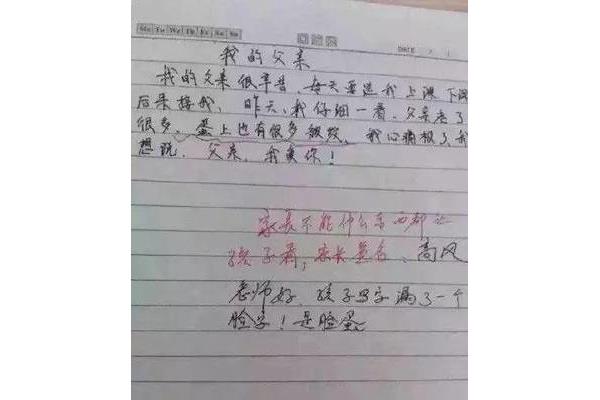 Mo Tu We Th Fr Sa Su
DATE
我的父亲
我的父亲很辛苦、每天要送我上课下课
后来接我，昨天、我仔细一看、父亲老了
很多、蛋上也有很多皱纹、我心痛极了、我
想说，父亲，我爱你！
家长不能什么东西都让
孩子看，家长签名、高风
老师好、孩子写字漏了一个
脸字！是脸蛋